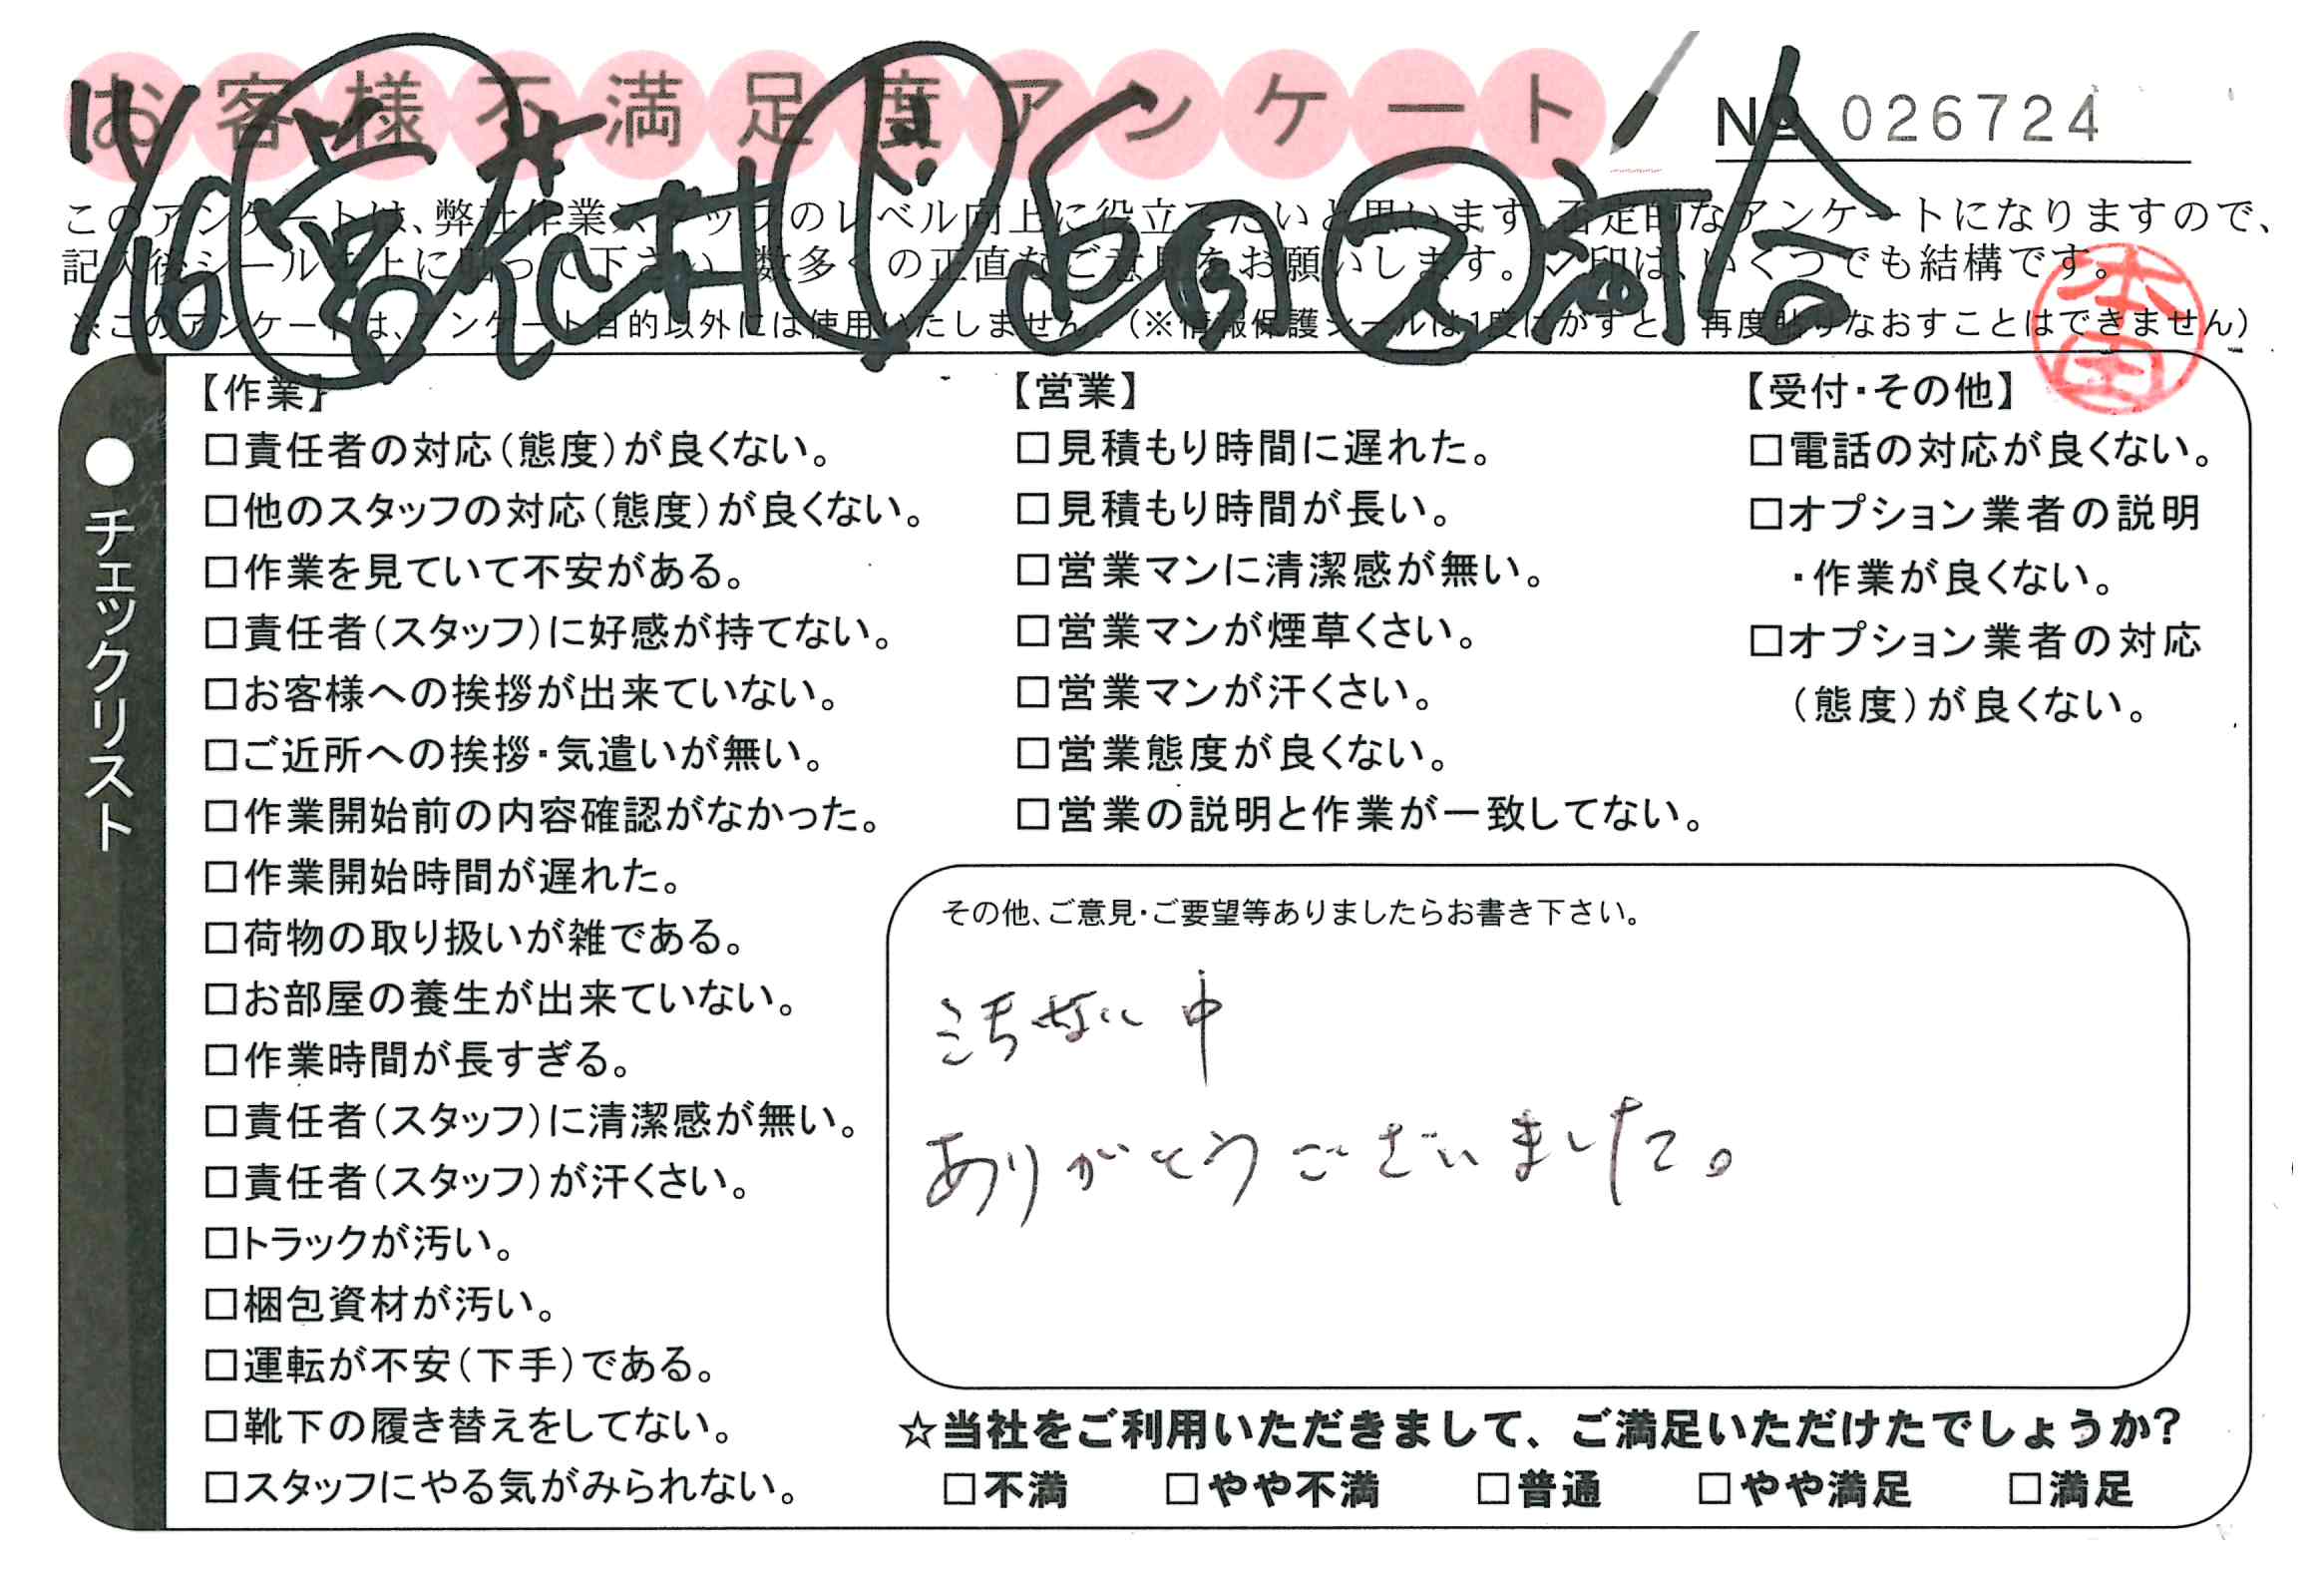 お客様不満足度アンケート
№ 026724
11/16 営 花村 ド 山内 ス 河合
このアンケートは、弊社作業スタッフのレベル向上に役立てたいと思います。否定的なアンケートになりますので、
記入後シールを上に貼って下さい。数多くの正直なご意見をお願いします。✓印は、いくつでも結構です。
※このアンケートは、アンケート目的以外には使用いたしません。（※情報保護シールは1度はがすと、再度貼りなおすことはできません）
●チェックリスト
【作業】
□責任者の対応（態度）が良くない。
□他のスタッフの対応（態度）が良くない。
□作業を見ていて不安がある。
□責任者（スタッフ）に好感が持てない。
□お客様への挨拶が出来ていない。
□ご近所への挨拶・気遣いが無い。
□作業開始前の内容確認がなかった。
□作業開始時間が遅れた。
□荷物の取り扱いが雑である。
□お部屋の養生が出来ていない。
□作業時間が長すぎる。
□責任者（スタッフ）に清潔感が無い。
□責任者（スタッフ）が汗くさい。
□トラックが汚い。
□梱包資材が汚い。
□運転が不安（下手）である。
□靴下の履き替えをしてない。
□スタッフにやる気がみられない。
【営業】
□見積もり時間に遅れた。
□見積もり時間が長い。
□営業マンに清潔感が無い。
□営業マンが煙草くさい。
□営業マンが汗くさい。
□営業態度が良くない。
□営業の説明と作業が一致してない。
【受付・その他】
□電話の対応が良くない。
□オプション業者の説明
・作業が良くない。
□オプション業者の対応
（態度）が良くない。
その他、ご意見・ご要望等ありましたらお書き下さい。
中
ありがとうございました。
☆当社をご利用いただきまして、ご満足いただけたでしょうか?
□不満 □やや不満 □普通 □やや満足 □満足